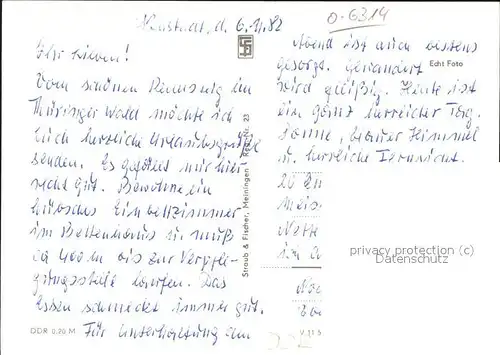 d. 6.9.82
0-6314
Ihr Lieben!
Vom schönen Rennsteig im
Thüringer Wald möchte ich
Euch herzliche Urlaubsgrüße
senden. Es gefällt mir hier
recht gut. Bewohne ein
hübsches Einbettzimmer
im Bettenhaus u. muß
ca 400 m bis zur Verpfle-
gungsstelle laufen. Das
Essen schmeckt immer gut.
Für Unterhaltung am
DDR 0,20 M
Straub & Fischer, Meiningen
23
Abend ist auch bestens
gesorgt. Gewandert
Echt Foto
wird fleißig. Heute ist
ein ganz herrlicher Tag.
Sonne, blauer Himmel
u. herrliche Fernsicht.
ich
privacy protection (c)
Datenschutz
V 11 5